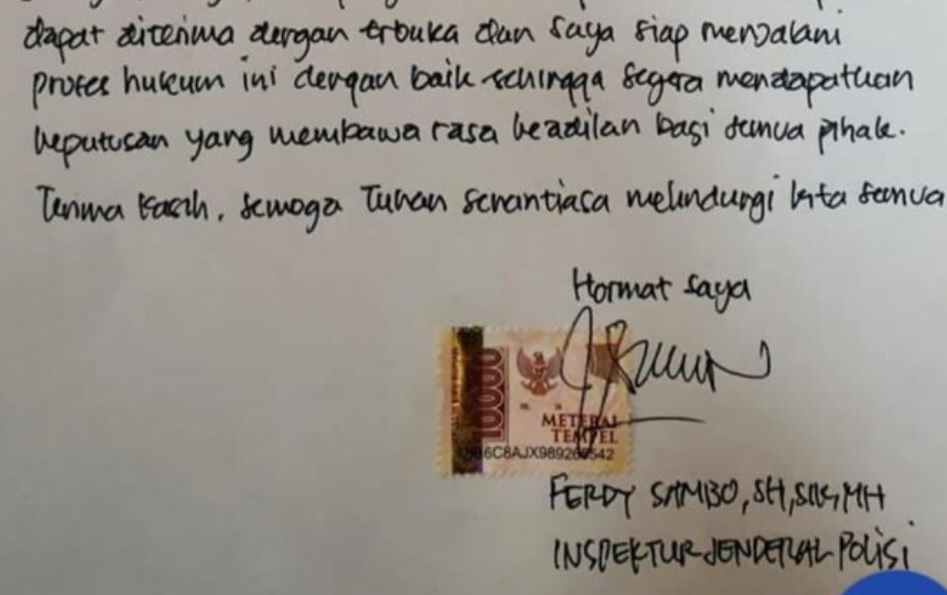 dapat diterima dengan terbuka dan saya siap menjalani
proses hukum ini dengan baik sehingga segera mendapatkan
keputusan yang membawa rasa keadilan bagi semua pihak.
Terima kasih, semoga Tuhan senantiasa melindungi kita semua
Hormat saya
10000
METERAI
TEMPEL
6C8AJX989266542
FERDY SAMBO, SH, SIK, MH
INSPEKTUR JENDERAL POLISI